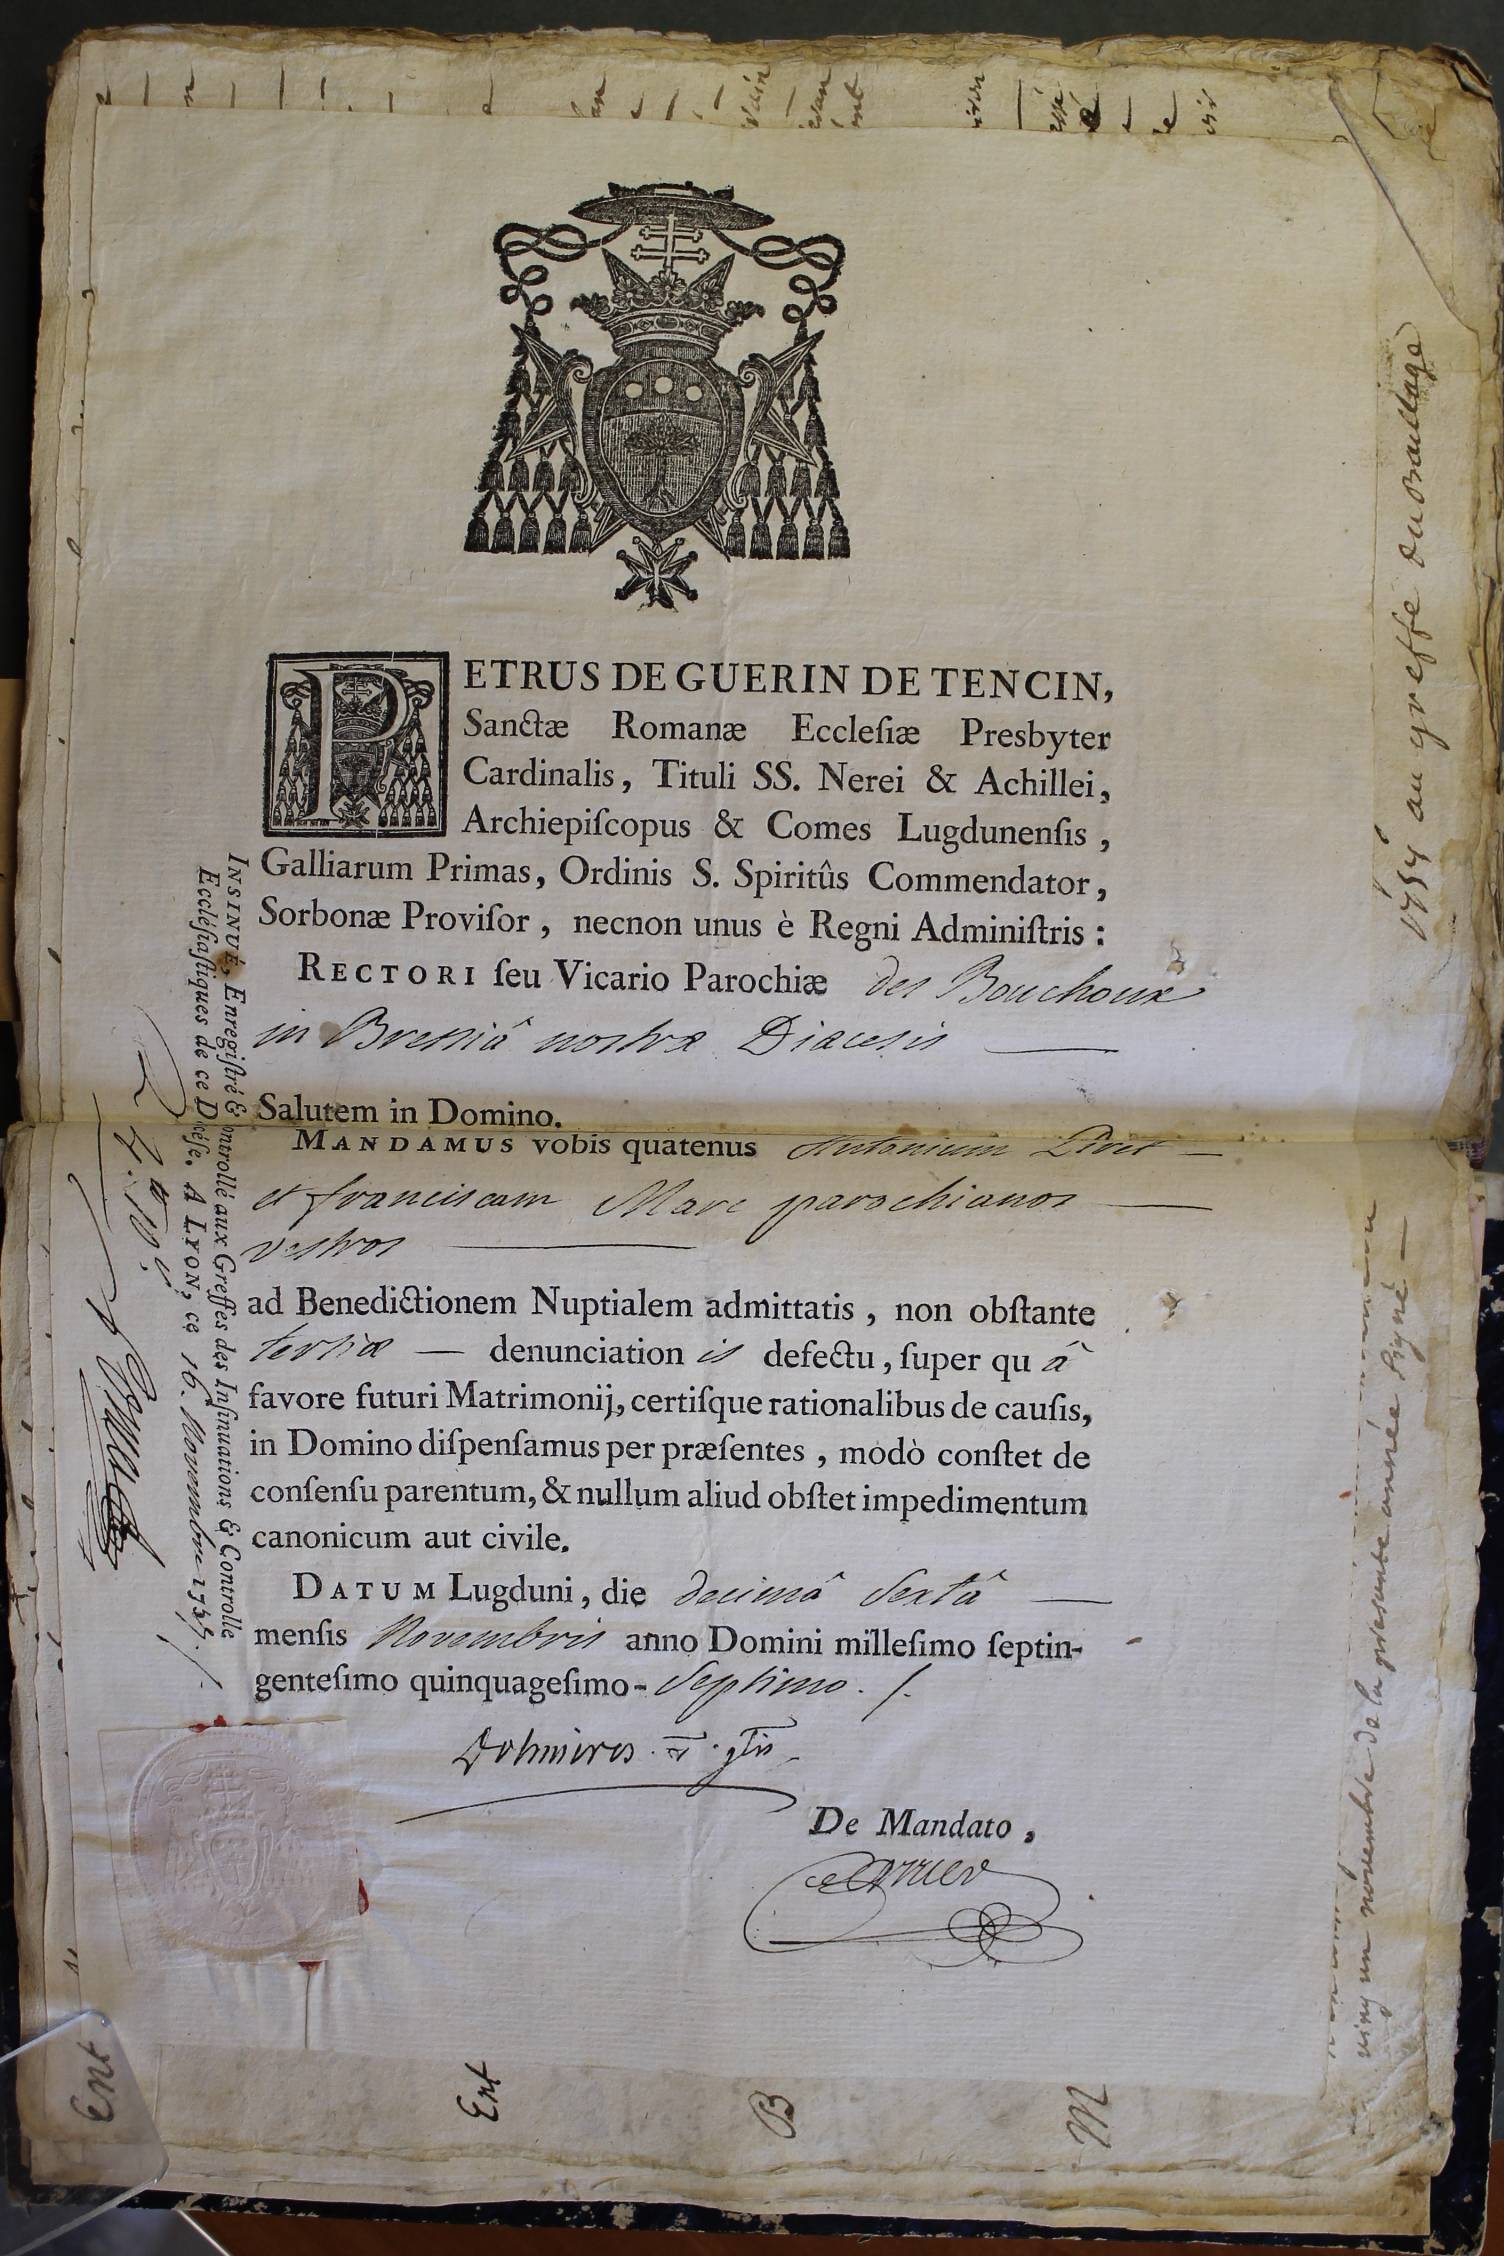 PETRUS DE GUERIN DE TENCIN,
Sanctæ Romanæ Eccleſiæ Presbyter
Cardinalis, Tituli SS. Nerei & Achillei,
Archiepiſcopus & Comes Lugdunenſis,
Galliarum Primas, Ordinis S. Spiritûs Commendator,
Sorbonæ Proviſor, necnon unus è Regni Adminiſtris:
RECTORI ſeu Vicario Parochiæ des Bouchoux
in Bressiâ nostræ Diæcesis —
Salutem in Domino.
MANDAMUS vobis quatenus Antonium —
et franciscam Marc parochianos —
vestros —
ad Benedictionem Nuptialem admittatis, non obſtante
tertiæ — denunciationis defectu, ſuper quâ
favore futuri Matrimonij, certiſque rationalibus de cauſis,
in Domino diſpenſamus per præſentes, modò conſtet de
conſenſu parentum, & nullum aliud obſtet impedimentum
canonicum aut civile.
DATUM Lugduni, die decimâ sextâ —
menſis Novembris anno Domini milleſimo ſeptin-
genteſimo quinquageſimo-septimo. /.
De Mandato,
INSINUÉ, Enregiſtré & ontrollé aux Greffes des Inſinuations & Controlle
Eccléſiaſtiques de ce Diocéſe. A LYON, ce 16. Novembre 1757. /.
au greffe du Bailliage
ving un novembre de la presente année signé —
Ent
Ent
B
M